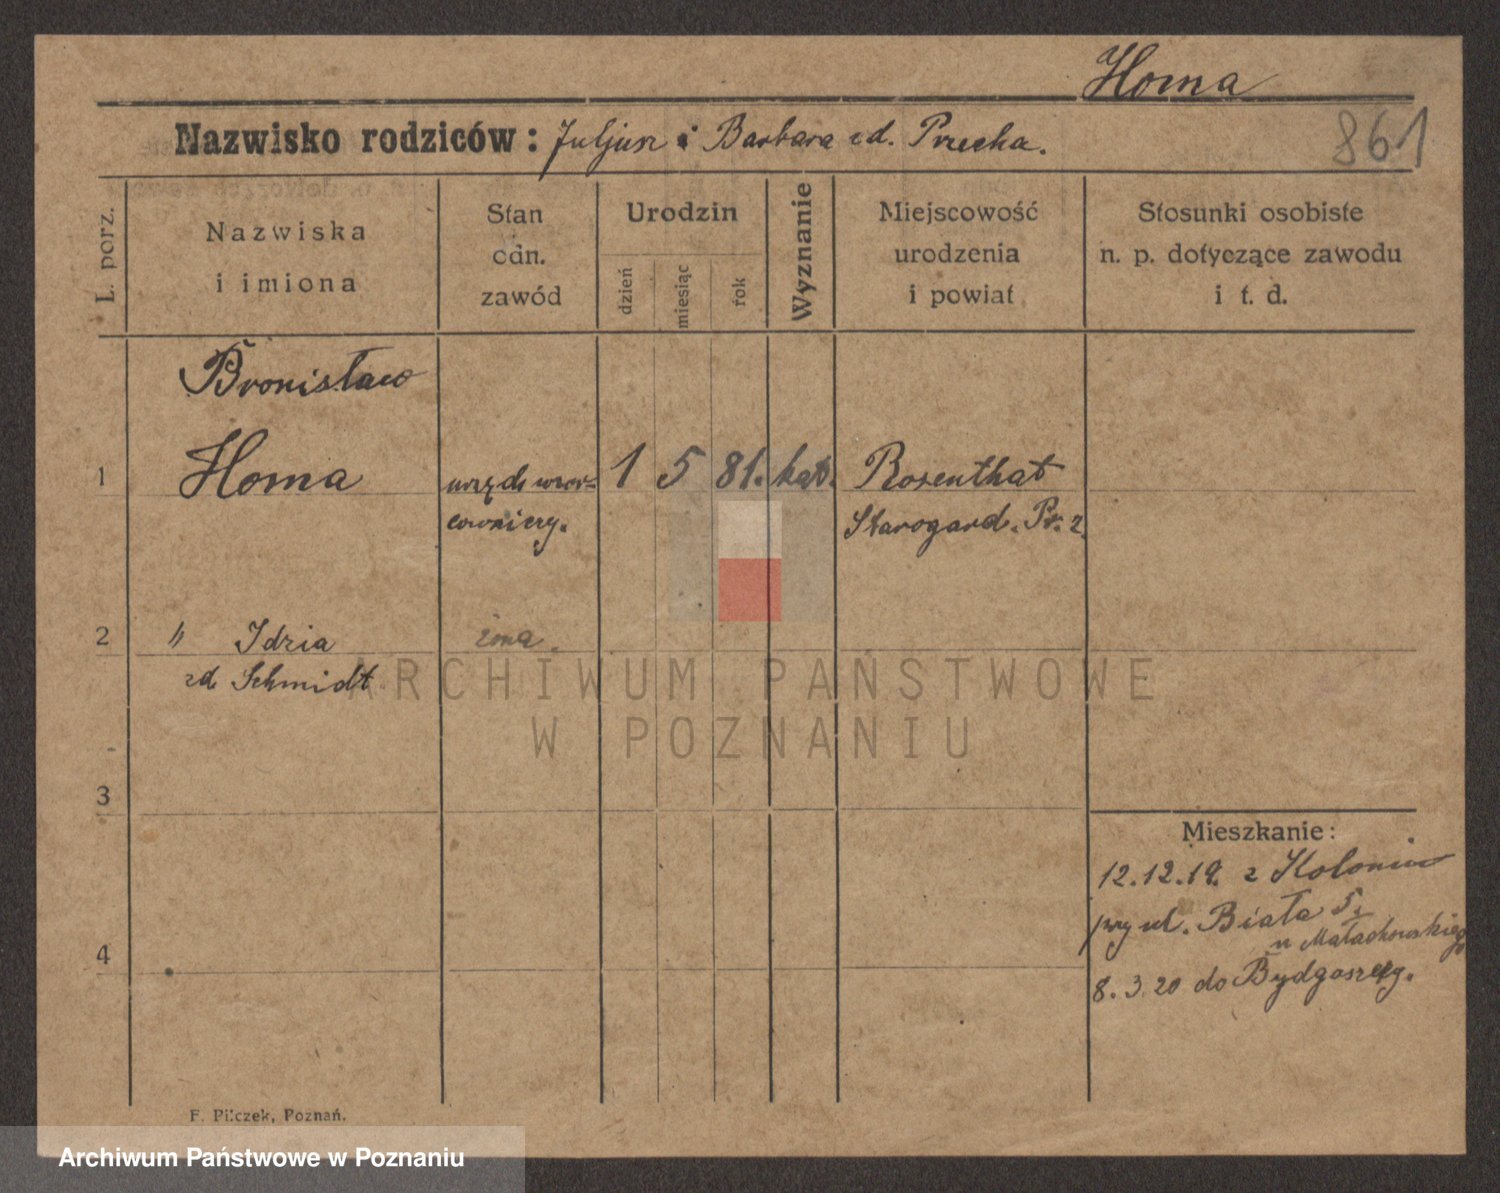 Homa
Nazwisko rodziców: Juljusz i Barbara zd. Przecha.
861
L. porz.
Nazwiska
i imiona
Stan
odn.
zawód
Urodzin
dzień
miesiąc
rok
Wyznanie
Miejscowość
urodzenia
i powiat
Stosunki osobiste
n. p. dotyczące zawodu
i t. d.
Bronisław
1 Homa 1 5 81. kat. Rosenthat
Starogard. Pr. Z
2 " Idzia żona.
zd. Schmidt
3
4
Mieszkanie:
12.12.19. z Kolonii
przy ul. Biała 5.
u Małachowskiego
8.3.20 do Bydgoszczy.
F. Pilczek, Poznań.
ARCHIWUM PAŃSTWOWE
W POZNANIU
Archiwum Państwowe w Poznaniu